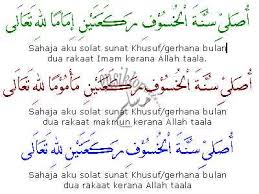 أُصَلِّي سُنَّةَ الْخُسُوْفِ رَكْعَتَيْنِ إِمَامًا لِلّٰهِ تَعَالَى
Sahaja aku solat sunat Khusuf/gerhana bulan
dua rakaat Imam kerana Allah taala.
أُصَلِّي سُنَّةَ الْخُسُوْفِ رَكْعَتَيْنِ مَأْمُوْمًا لِلّٰهِ تَعَالَى
Sahaja aku solat sunat Khusuf/gerhana bulan
dua rakaat makmun kerana Allah taala
أُصَلِّي سُنَّةَ الْخُسُوْفِ رَكْعَتَيْنِ لِلّٰهِ تَعَالَى
Sahaja aku solat sunat Khusuf/gerhana bulan
dua rakaat kerana Allah taala